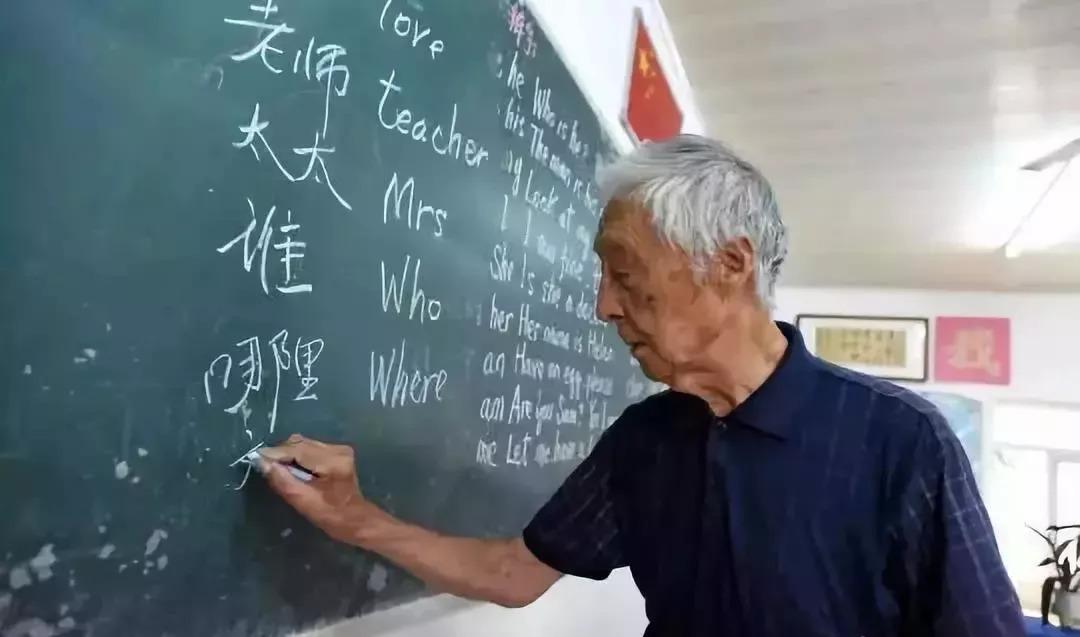 love
老师 teacher
太太 Mrs
谁 Who
哪里 Where
he Who is he?
his The man is
Look at
I I am fine
She Is she a
her Her name is Helen
an Have an egg please
an Are you Sam?
me Let me have a